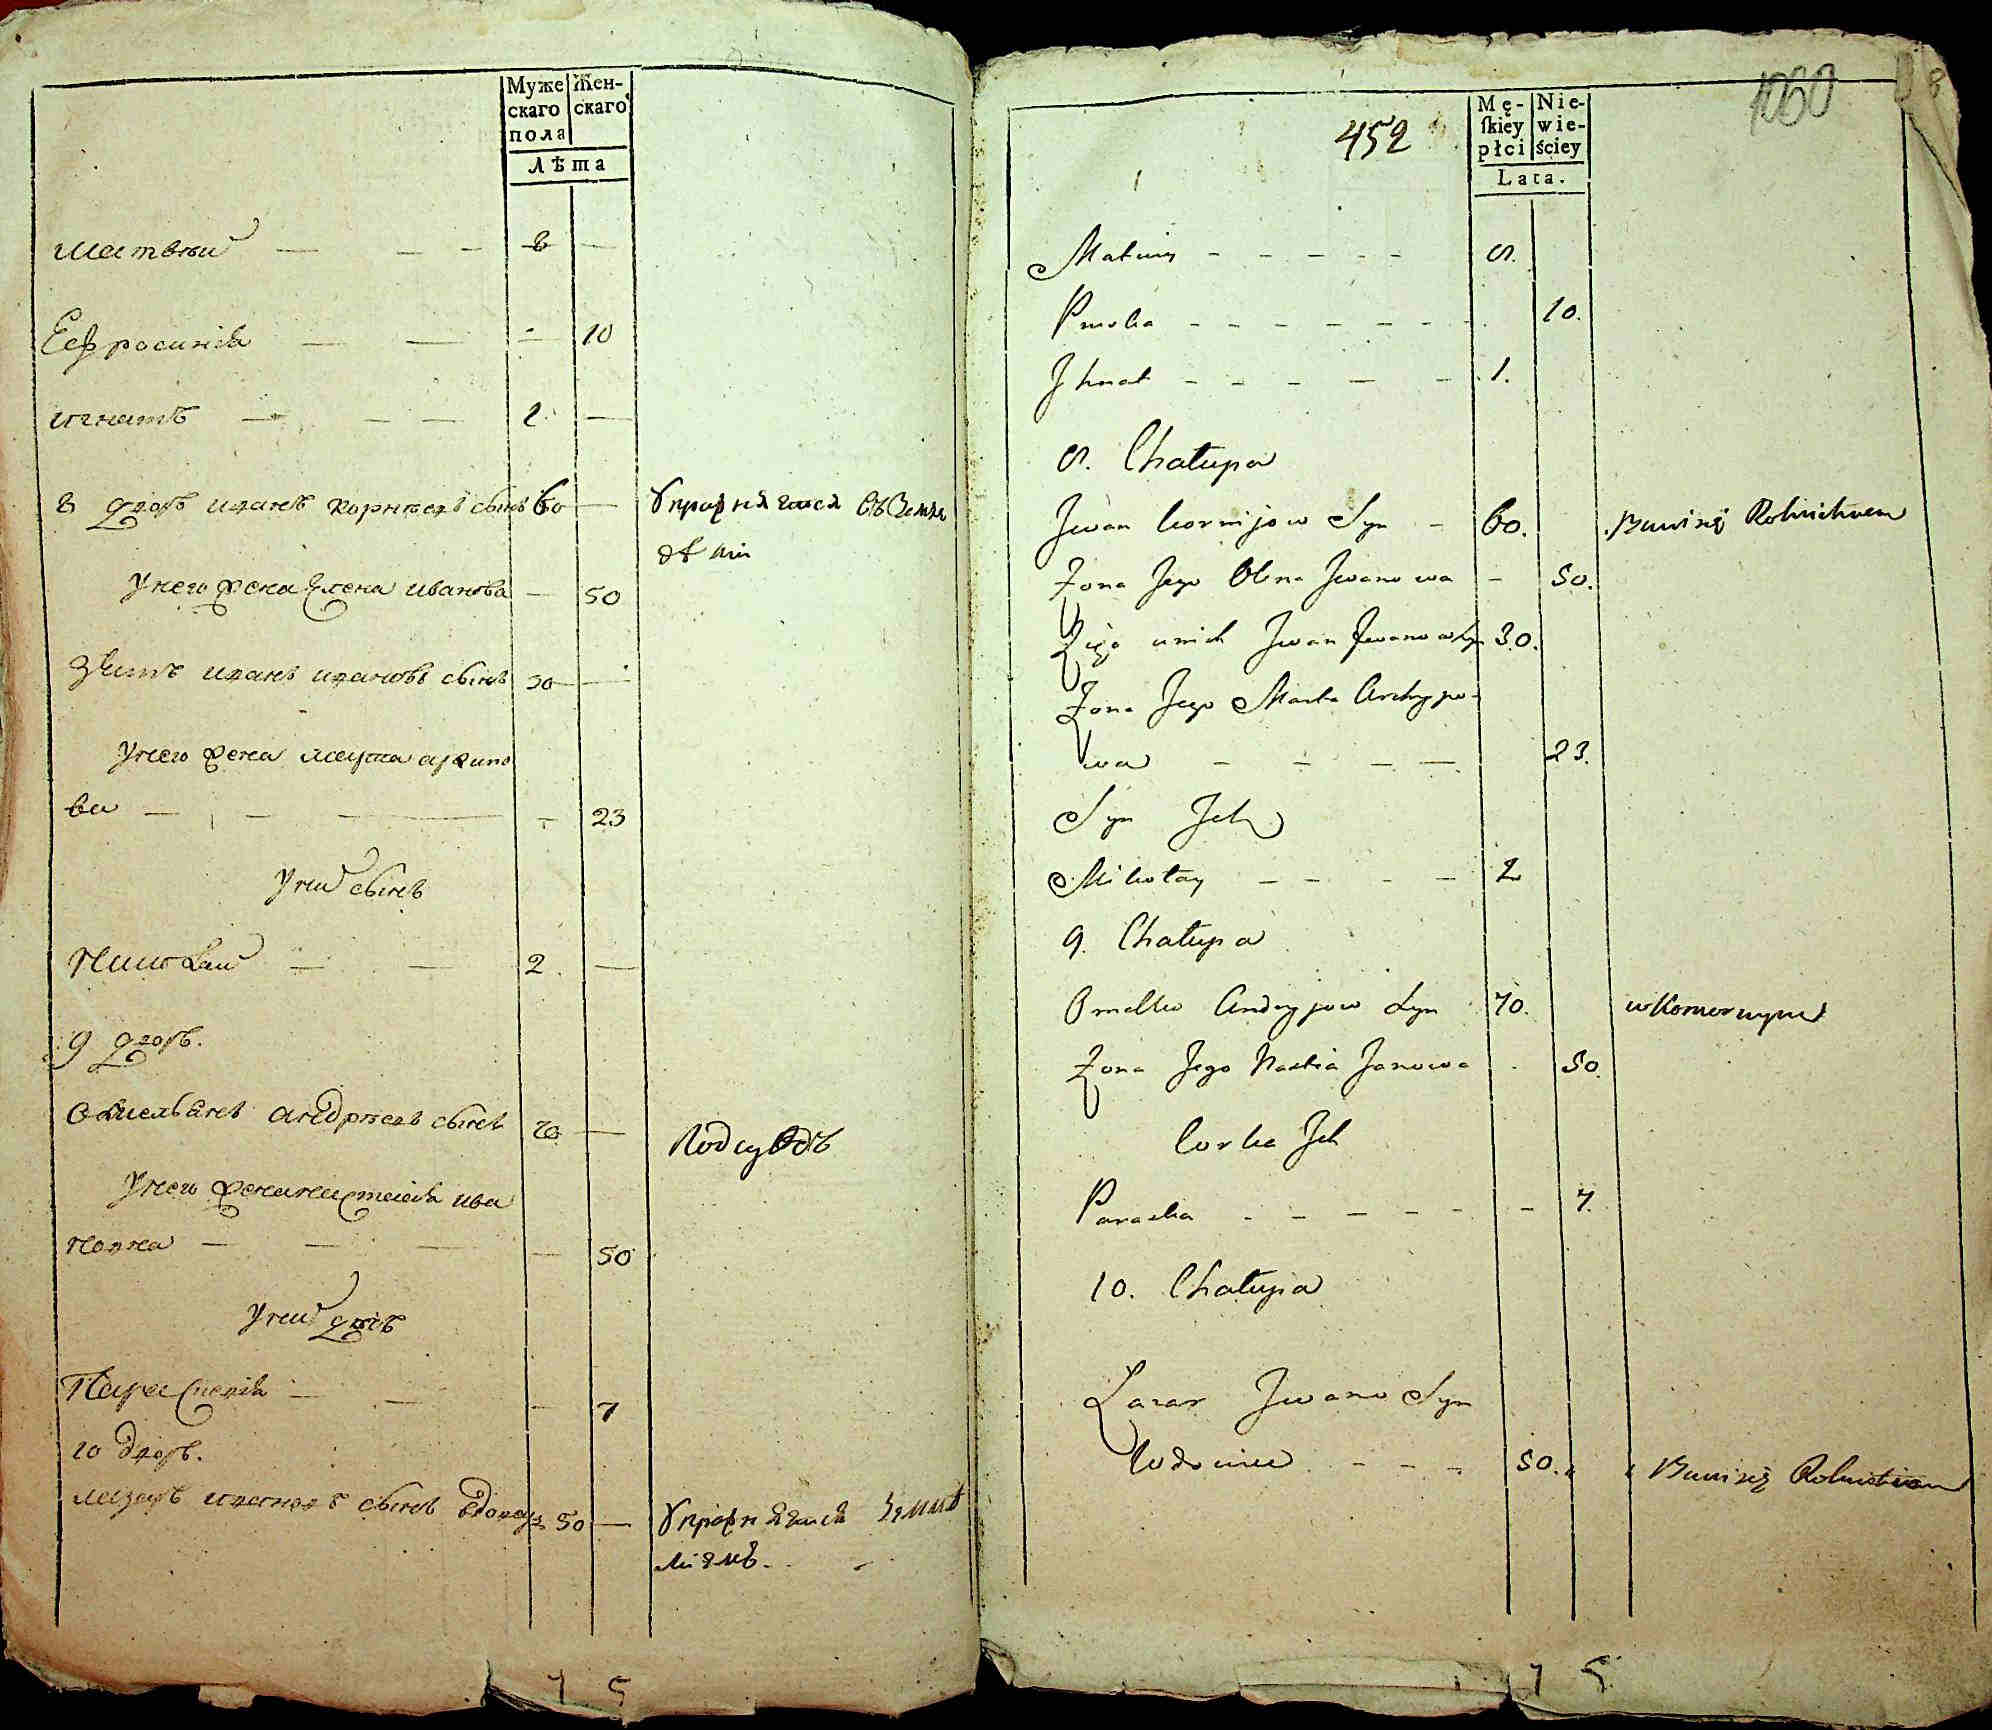 Муже Жен-
скаго скаго
пола
Лѣта
матвѣй — — - 8 —
Еѳросинія — — — 10
игнатъ — — — 1 —
8 дворъ иванъ корнѣевъ сынъ 60 — Упражняется въ земле
дѣлии
У него жена Елена иванова — 50
Зять иванъ ивановъ сынъ 30 —
У него жена марта архипо
ва — — — — 23
У них сынъ
Николай — — 2 —
9 дворъ.
Омельянъ андрѣевъ сынъ 70 — Подсусѣдъ
У него жена настасія ива
новна — — — — 50
У них дочь
Параскевія — — — 7
10 дворъ.
лазарь ивановъ сынъ вдовецъ 50 — Упражняется земледѣ
ліемъ.
7 5
1060
452
Mę- Nie-
skiey wie-
płci ściey
Lata.
Matwiy - - - - - 8.
Pruska - - - - - - 10.
Jhnat - - - - - 1.
8. Chałupa
Jwan Kornijow Syn - 60. Bawi się Rolnictwem
Zona Jego Olena Jwanowa - 50.
Zięć u nich Jwan Jwanow Syn 30.
Zona Jego Marta Archypo-
wa - - - - 23.
Syn Jch
Mikołay - - - - 2
9. Chałupa
Omelko Andryjow Syn 70. w Komornym
Zona Jego Nastia Janowa . 50.
Corka Jch
Paraska - - - - - - 7.
10. Chałupa
Łazar Jwanow Syn
Wdowiec - - - 50. Bawi się Rolnictwem
7 5